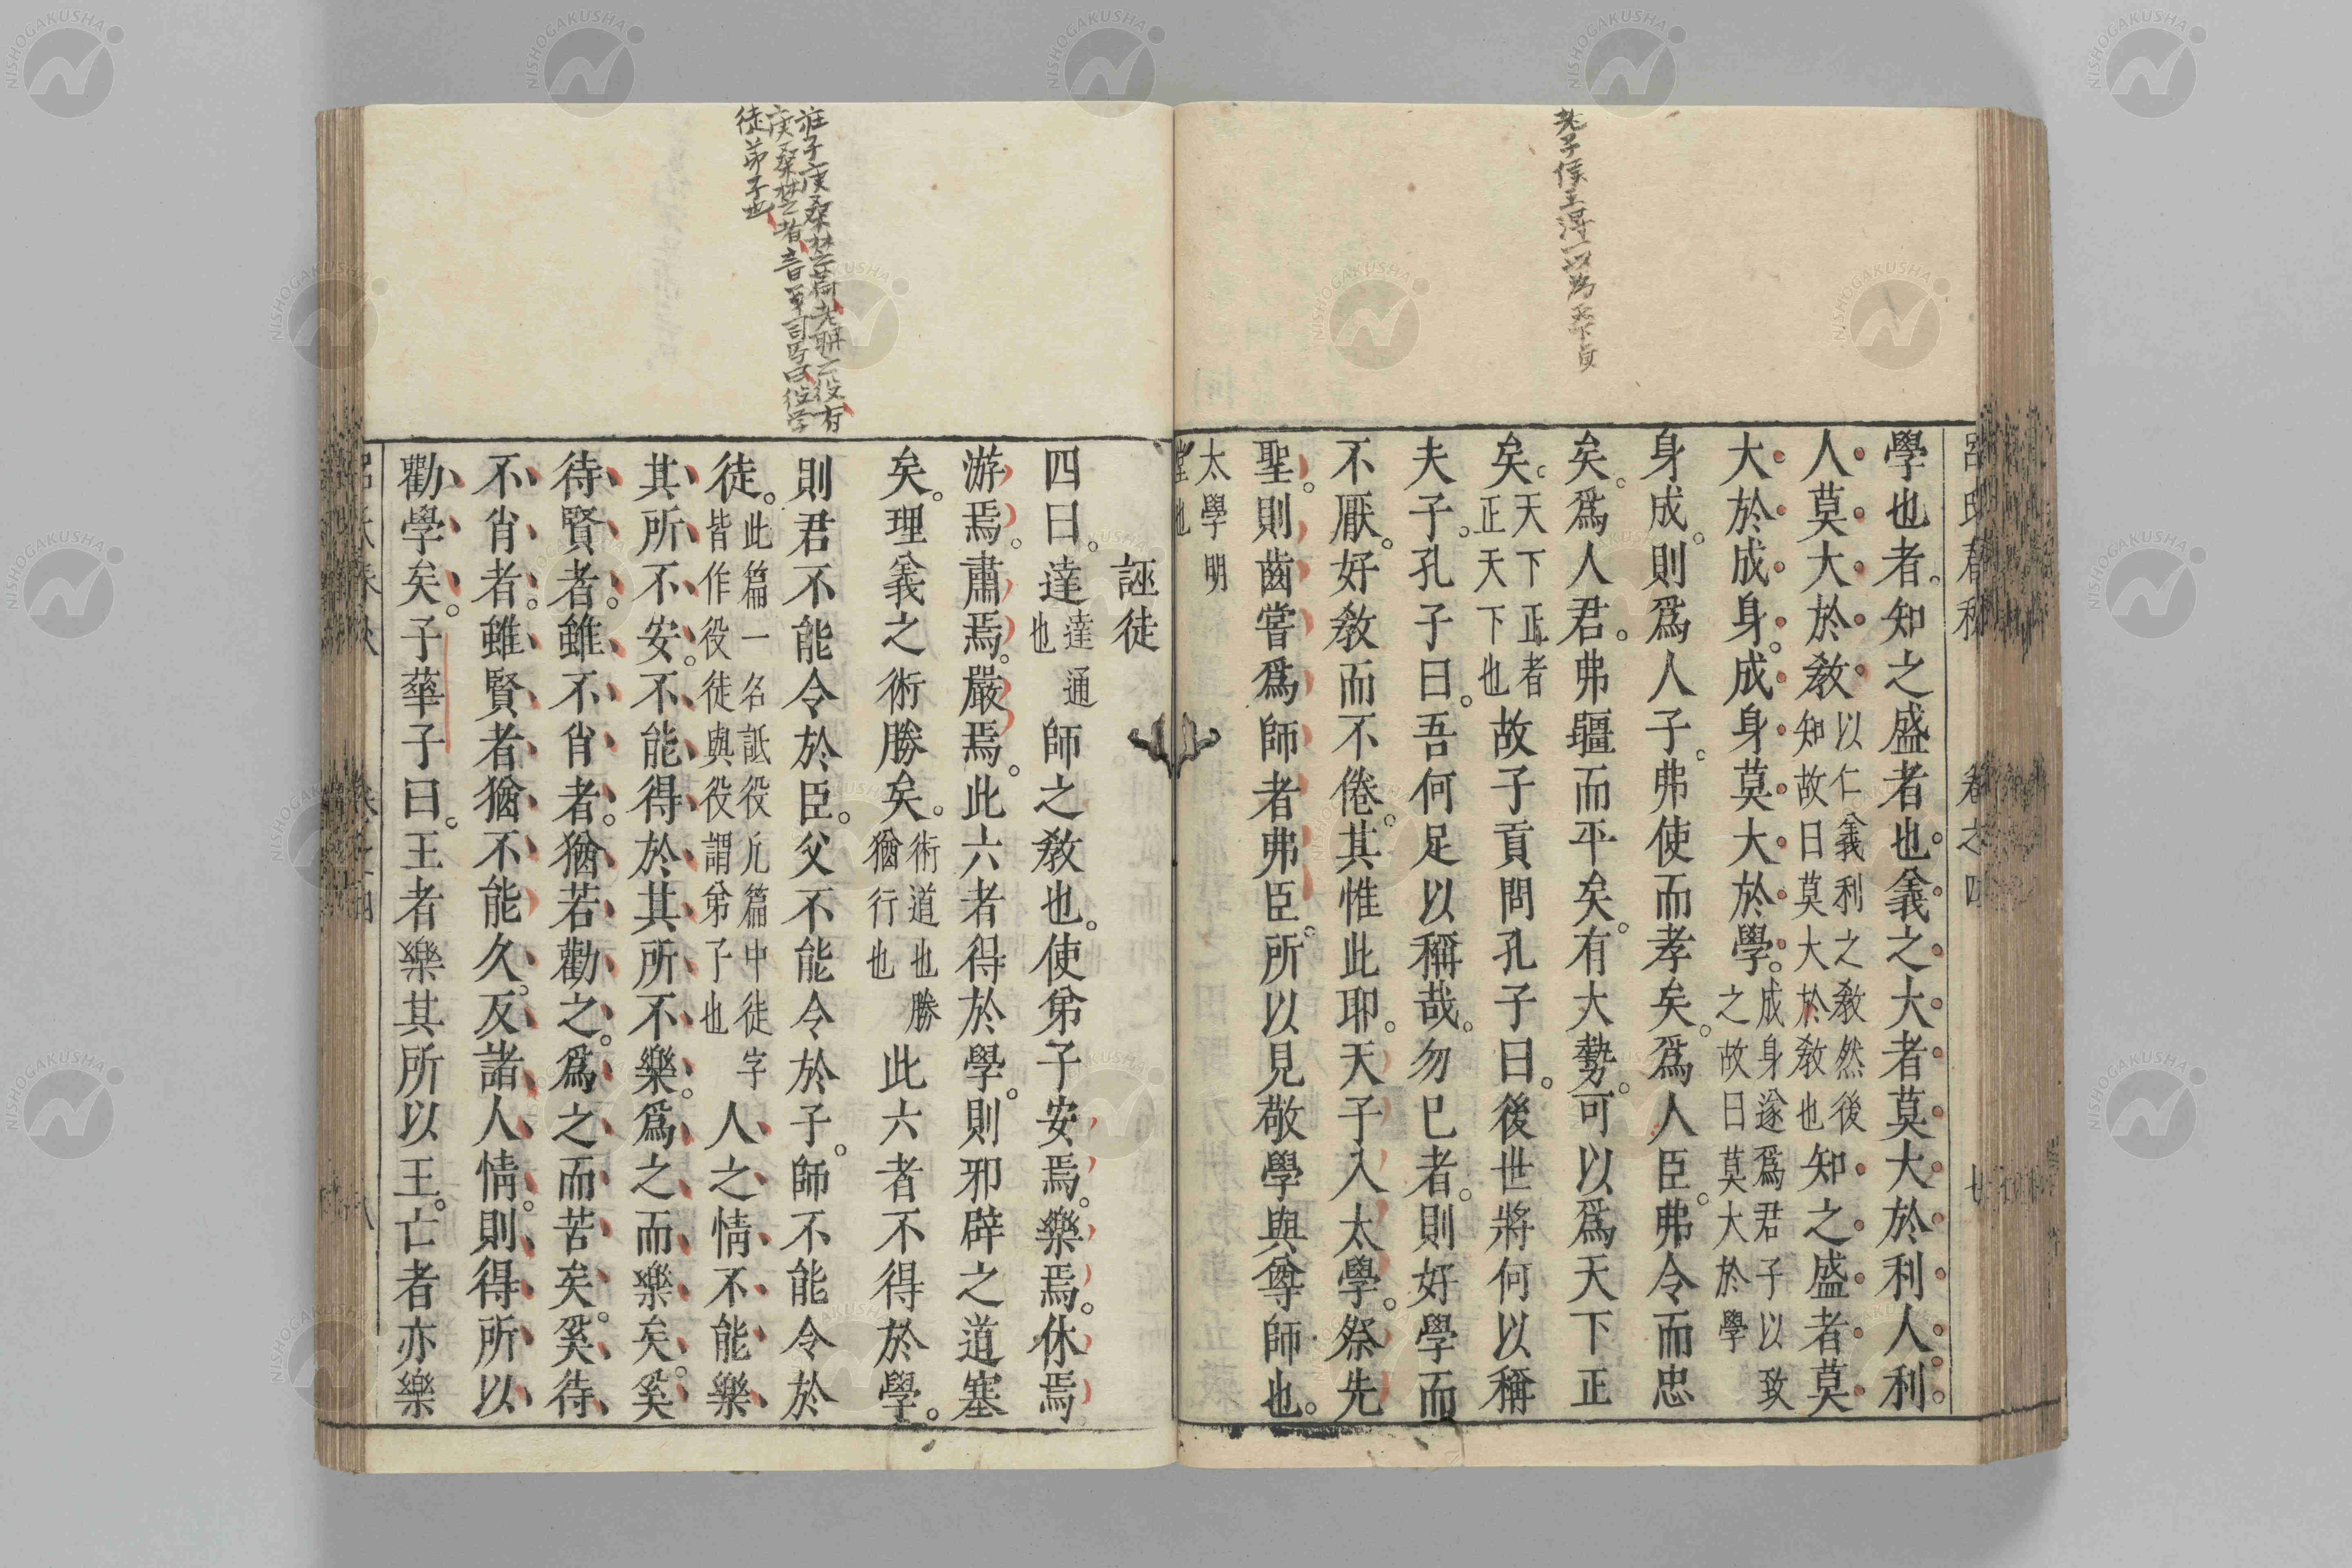 老子侯王得一以爲天下貞
學也者。知之盛者也。義之大者莫大於利人利
人莫大於敎以仁義利之敎然後知故曰莫大於敎也知之盛者莫
大於成身。成身莫大於學。成身遂爲君子以致之故曰莫大於學
身成。則爲人子。弗使而孝矣。爲人臣。弗令而忠
矣。爲人君。弗彊而平矣。有大勢。可以爲天下正
矣。天下正者正天下也故子貢問孔子曰。後世將何以稱
夫子。孔子曰。吾何足以稱哉。勿已者。則好學而
不厭。好敎而不倦。其惟此耶。天子入太學。祭先
聖。則齒嘗爲師者弗臣。所以見敬學與尊師也。
太學明堂也
莊子庚桑楚云老聃之役有
庚桑楚者音司馬曰役学
徒弟子也
誣徒
四曰。達達通也師之敎也。使弟子安焉。樂焉。休焉
游焉。肅焉。嚴焉。此六者得於學。則邪辟之道塞
矣。理義之術勝矣。術道也勝猶行也此六者不得於學。
則君不能令於臣。父不能令於子。師不能令於
徒。此篇一名詆役凡篇中徒字皆作役徒與役謂弟子也人之情不能樂
其所不安。不能得於其所不樂。爲之而樂矣。奚
待賢者。雖不肖者。猶若勸之。爲之而苦矣。奚待
不肖者。雖賢者猶不能久。反諸人情。則得所以
勸學矣。子華子曰。王者樂其所以王。亡者亦樂